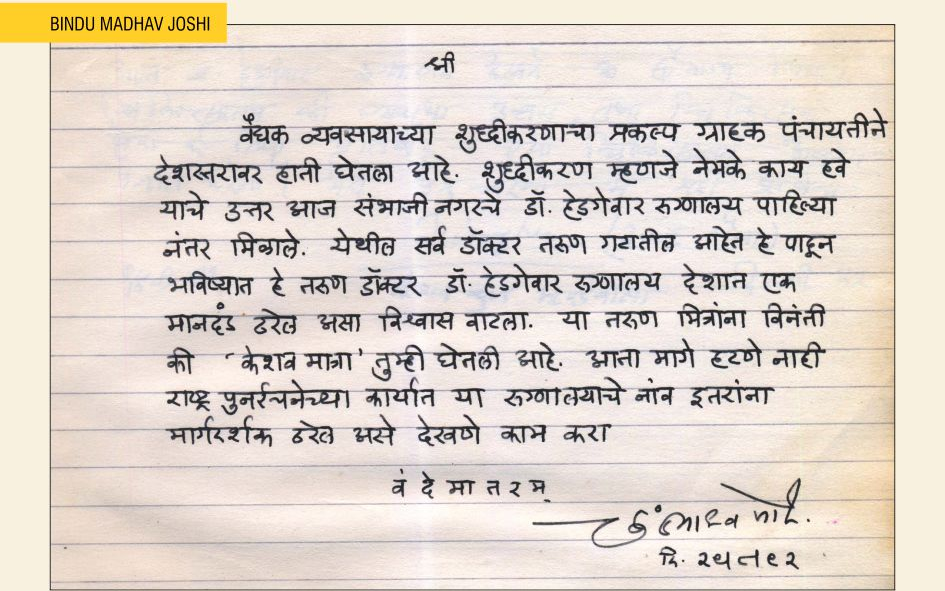 BINDU MADHAV JOSHI
श्री
वैद्यक व्यवसायाच्या शुद्धीकरणाचा प्रकल्प ग्राहक पंचायतीने
देशस्तरावर हाती घेतला आहे. शुद्धीकरण म्हणजे नेमके काय हवे
याचे उत्तर आज संभाजी नगरचे डॉ. हेडगेवार रुग्णालय पाहिल्या
नंतर मिळाले. येथील सर्व डॉक्टर तरुण गटातील आहेत हे पाहून
भविष्यात हे तरुण डॉक्टर डॉ. हेडगेवार रुग्णालय देशात एक
मानदंड ठरेल असा विश्वास वाटला. या तरुण मित्रांना विनंती
की 'केशव मात्रा' तुम्ही घेतली आहे. आता मागे हटणे नाही
राष्ट्र पुनर्रचनेच्या कार्यात या रुग्णालयाचे नांव इतरांना
मार्गदर्शक ठरेल असे देखणे काम करा
वं दे मा त र म्
दि.